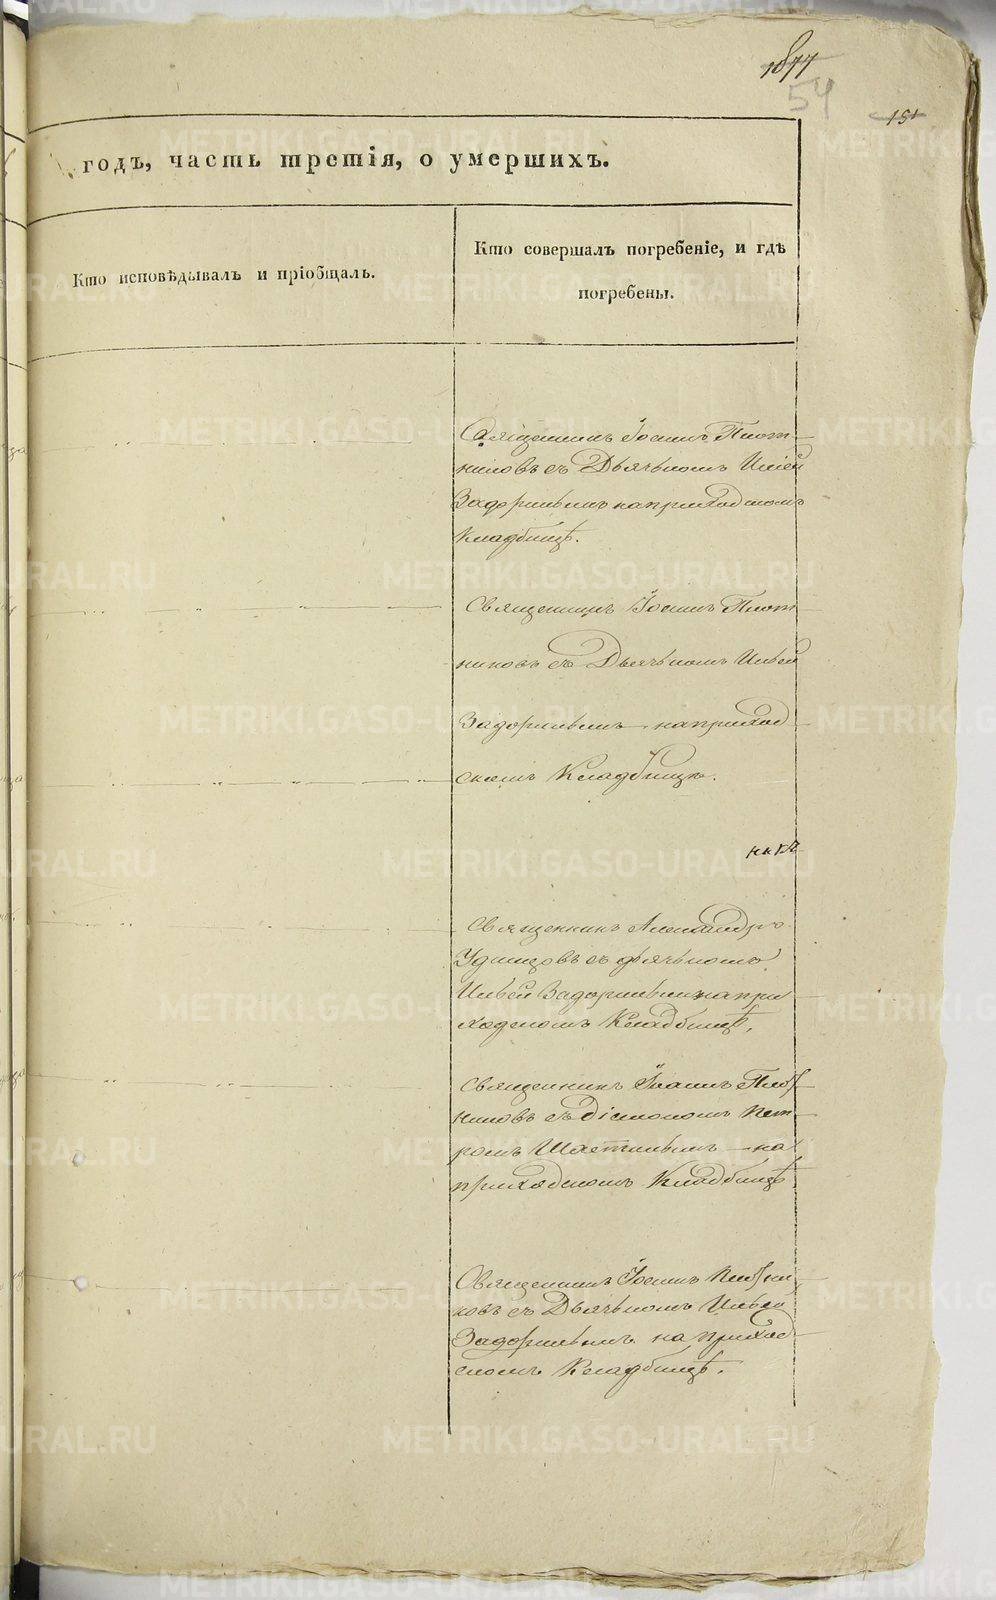 1877
54
151
годъ, часть третія, о умершихъ.
Кто исповѣдывалъ и пріобщалъ.
Кто совершалъ погребеніе, и гдѣ
погребены.
Священникъ Іоаннъ Плот
никовъ съ Дьячькомъ Иліей
Задоринымъ на приходскомъ
Кладбищѣ.
Священникъ Іоаннъ Плот
никовъ съ Дьячькомъ Ильей
Задоринымъ на приход
скомъ Кладбищѣ.
Священникъ Александръ
Удинцовъ съ дьячькомъ
Ильей Задоринымъ на при
ходскомъ Кладбищѣ.
Священникъ Іоаннъ Плот
никовъ съ Діакономъ Пет
ромъ на
приходскомъ Кладбищѣ
Священникъ Іоаннъ Плотни
ковъ съ Дьячькомъ Ильей
Задоринымъ на приход
скомъ Кладбищѣ.
METRIKI.GASO-URAL.RU